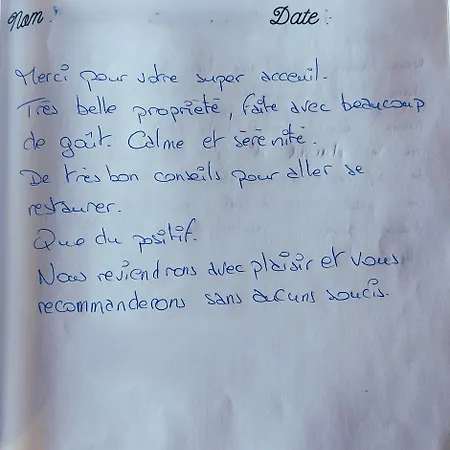 Nom :
Date :
Merci pour votre super acceuil.
Très belle propriété, faite avec beaucoup
de goût. Calme et sérénité.
De très bon conseils pour aller se
restaurer.
Que du positif.
Nous reviendrons avec plaisir et vous
recommanderons sans aucuns soucis.